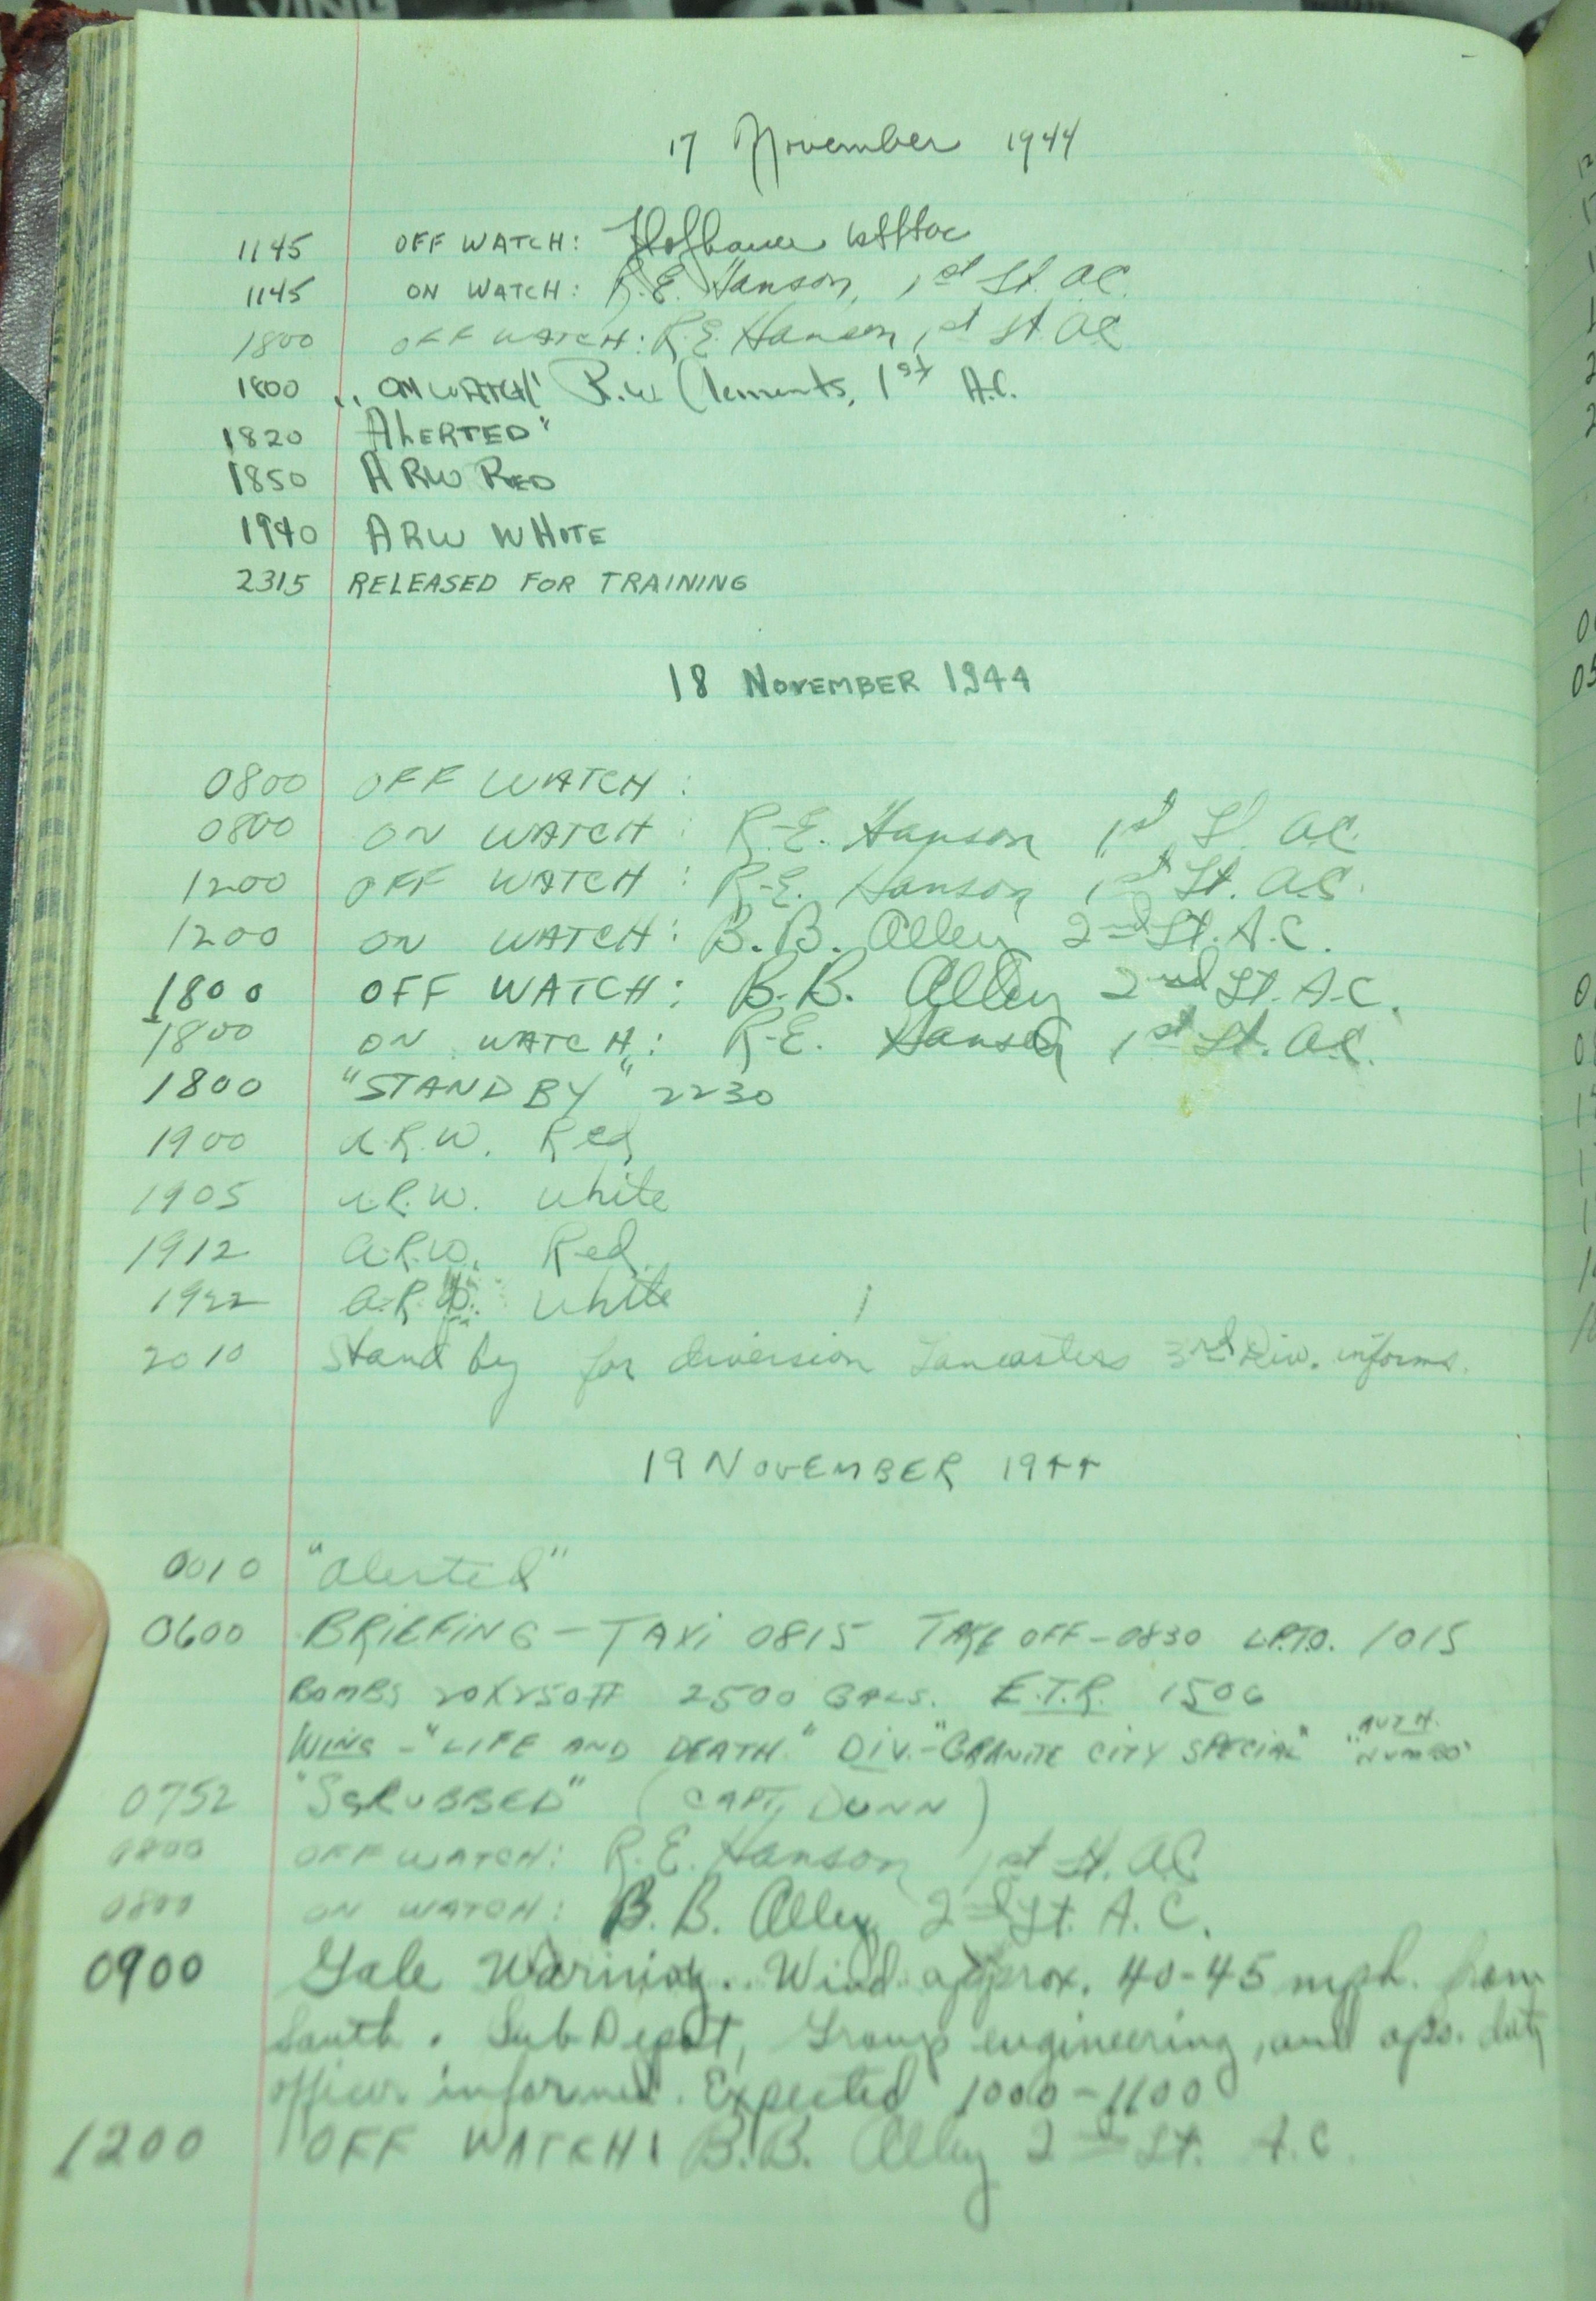 17 November 1944
1145 OFF WATCH: Hofbauer 1st Lt ac
1145 ON WATCH: R.E. Hanson, 1st Lt. AC.
1800 OFF WATCH: R.E. Hanson, 1st Lt AC
1800 ON WATCH R.W Clements, 1st A.C.
1820 ALERTED"
1850 ARW RED
1940 ARW WHITE
2315 RELEASED FOR TRAINING
18 NOVEMBER 1944
0800 OFF WATCH:
0800 ON WATCH: R.E. Hanson 1st Lt. AC.
1200 OFF WATCH: R.E. Hanson 1st Lt. AC.
1200 ON WATCH: B.B. Alley 2nd Lt. A.C.
1800 OFF WATCH: B.B. Alley 2nd Lt. A.C.
1800 ON WATCH: R.E. Hanson 1st Lt. AC.
1800 "STAND BY" 2230
1900 A.R.W. Red
1905 A.R.W. White
1912 A.R.W. Red
1922 A.R.W. White
2010 Stand by for diversion Lancasters 3rd Div. informs.
19 NOVEMBER 1944
0010 "Alerted"
0600 BRIEFING - TAXI 0815 TAKE OFF - 0830 L.P.T.O. 1015
BOMBS 20X250# 2500 GALS. E.T.R. 1506
WING - "LIFE AND DEATH" DIV. - "GRANITE CITY SPECIAL" AUTH.
0752 "SCRUBBED" (CAPT. DUNN)
0800 OFF WATCH: R.E. Hanson 1st Lt. AC
0800 ON WATCH: B.B. Alley 2nd Lt. A.C.
0900 Gale Warning.. Wind approx. 40-45 mph. from
South. Sub Depot, Group engineering, and ops. duty
officer informed. Expected 1000-1100
1200 OFF WATCH: B.B. Alley 2nd Lt. A.C.